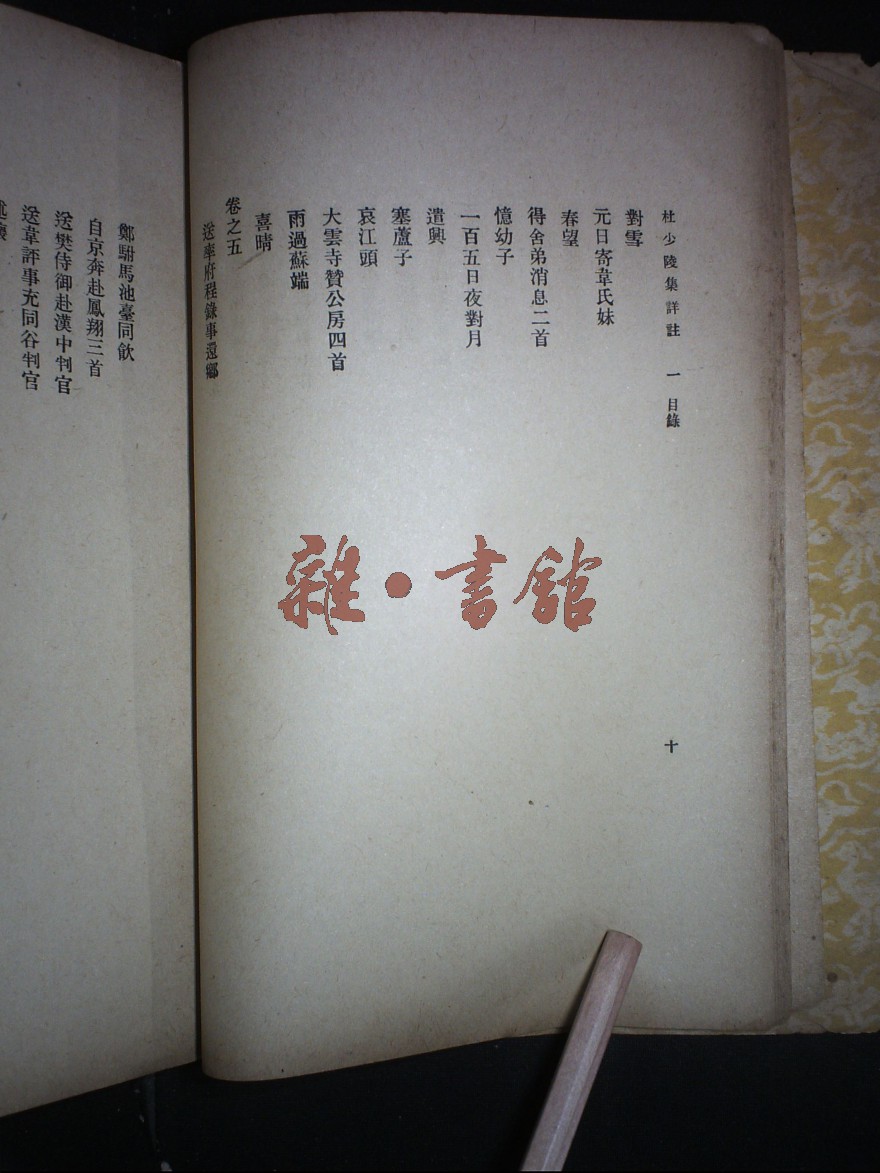 杜少陵集詳註 一 目錄 十
對雪
元日寄韋氏妹
春望
得舍弟消息二首
憶幼子
一百五日夜對月
遣興
塞蘆子
哀江頭
大雲寺贊公房四首
雨過蘇端
喜晴
卷之五
送率府程錄事還鄉
鄭駙馬池臺同飲
自京奔赴鳳翔三首
送樊侍御赴漢中判官
送韋評事充同谷判官
述懷
雜·書館